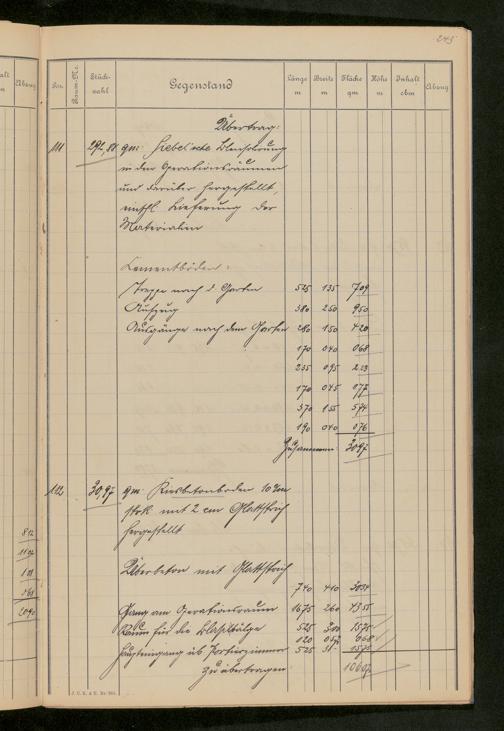 245
Pos. Raum-No. Stückzahl Gegenstand Länge m Breite m Fläche qm Höhe m Inhalt cbm Abzug
Übertrag:
111 292,88 qm
in den Operationsräumen
und darüber hergestellt,
einschl. Lieferung der
Materialien
Cementböden:
Treppe nach d. Garten 525 135 709
Aufzug 380 250 950
Ausgänge nach dem Garten 280 150 420
170 040 068
235 095 223
170 045 077
370 155 574
190 040 076
Zusammen: 3097
112 30,97 qm Kiesbetonboden 10 cm
stark mit 2 cm Glattstrich
hergestellt
Überbeton mit Glattstrich
740 410 3034
Gang am Operationsraum 1675 260 4355
Raum für die 525 300 1575
120 057 068
Haupteingang üb Portierzimmer 525 1575
Zu übertragen: 10607
J. C. K. & E. Nr.